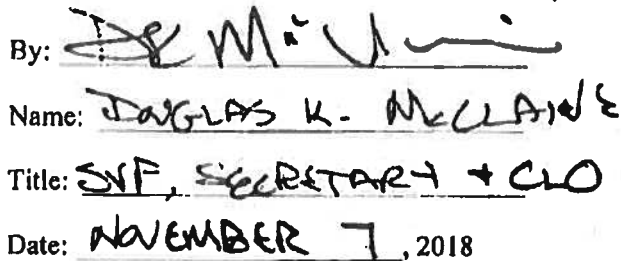 By:
Name: DOUGLAS K. McCLAINE
Title: SVP, SECRETARY + CLO
Date: NOVEMBER 7, 2018